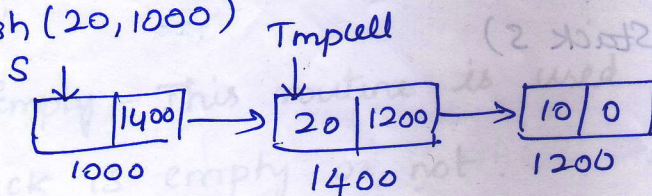 sh (20,1000)
Tmpcell
S
1400 20 1200 10 0
1000 1400 1200